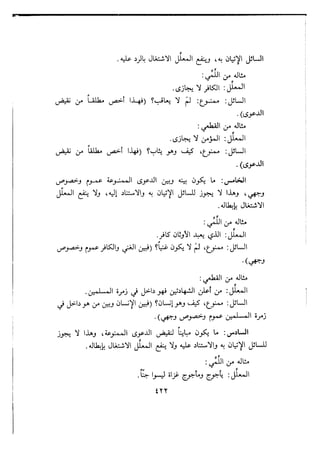 السائل الإتيان به، وينفع المعلِّل الاشتغال بالرد عليه.
مثاله من اللُّمِّي:
المعلِّل: الكافر لا يجازى.
السائل: ممنوع: لمَ لا يعاقب؟ (فهذا أخص مطلقاً من نقيض
الدعوى).
مثاله من القطعي:
المعلِّل: المؤمن لا يجازى.
السائل: ممنوع، كيف وهو يثاب؟ (فهذا أخص مطلقاً من نقيض
الدعوى).
الخامس: ما يكون بينه وبين الدعوى الممنوعة عموم وخصوص
وجهي، وهذا لا يجوز للسائل الإتيان به والاستناد إليه، ولا ينفع المعلِّل
الاشتغال بإبطاله.
مثاله من اللُّمِّي:
المعلِّل: الذي يعبد الأوثان كافر.
السائل: ممنوع، لم لا يكون غنياً؟ (فبين الغني والكافر عموم وخصوص
وجهي).
مثاله من القطعي:
المعلِّل: من أعلن الشهادتين فهو داخل في زمرة المسلمين.
السائل: ممنوع، كيف وهو إنسان؟ (فبين الإنسان وبين من هو داخل في
زمرة المسلمين عموم وخصوص وجهي).
السادس: ما يكون مبايناً لنقيض الدعوى الممنوعة، وهذا لا يجوز
للسائل الإتيان به والاستناد عليه ولا ينفع المعلِّل الاشتغال بإبطاله.
مثاله من اللُّمِّي:
المعلِّل: يأجوج ومأجوج غزاة ليسوا جنّاً.
٤٢٢